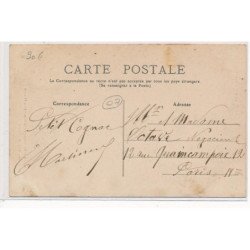 306
CARTE POSTALE
La Correspondance au recto n'est pas acceptée par tous les pays étrangers.
(Se renseigner à la Poste)
Correspondance
Adresse
Petit Cognac
et Madame
Négociant
12 rue Quincampoix 12
Paris